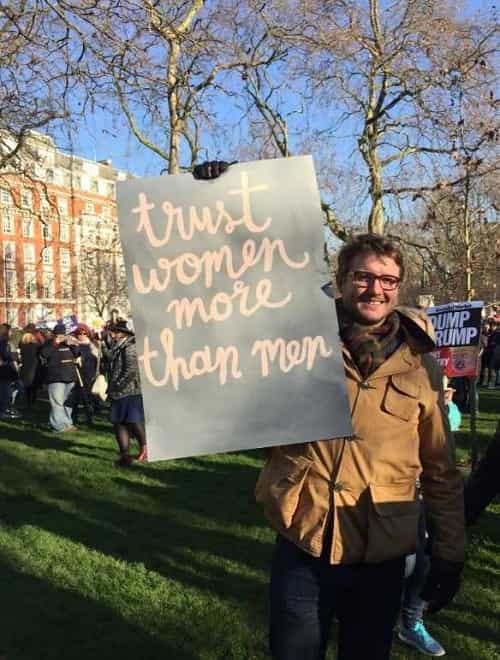 trust
women
more
than men
DUMP
TRUMP